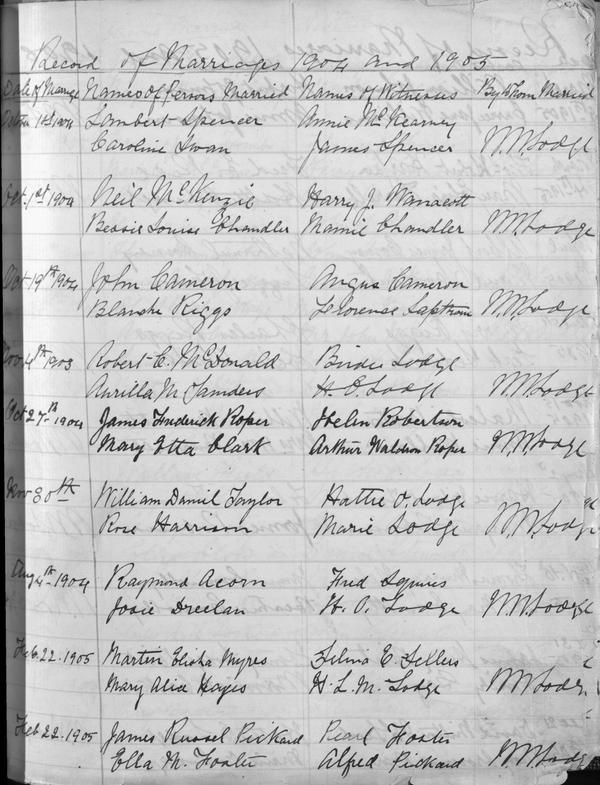 Record of Marriages 1904 and 1905
Date of Marriage Names of Persons Married Names of Witnesses By Whom Married
1st 1904 Lambert Spencer Annie McKearney
Caroline Swan James Spencer W.W. Lodge
Oct. 1st 1904 Neil McKenzie Harry J.
Bessie Louise Chandler Mamie Chandler W.W. Lodge
Oct 19th 1904 John Cameron Angus Cameron
Blanche Riggs Florence W.W. Lodge
Nov 4th 1903 Robert C. McDonald Birdie Lodge
Aurilla M Sanders H. O. Lodge W.W. Lodge
Oct 27th 1904 James Frederick Roper Helen Robertson
Mary Etta Clark Arthur Waldron Roper W.W. Lodge
Nov 30th William Daniel Taylor Hattie O. Lodge
Rose Harrison Marie Lodge W.W. Lodge
Aug 4th 1904 Raymond Acorn Fred Squires
Josie Dreelan H. O. Lodge W.W. Lodge
Feb. 22. 1905 Martin Elisha Myres Zelma E. Sellers
Mary Alice Hayes H. L. M. Lodge W.W. Lodge
Feb 22. 1905 James Russel Pickard Pearl Foster
Ella M. Foster Alfred Pickard W.W. Lodge